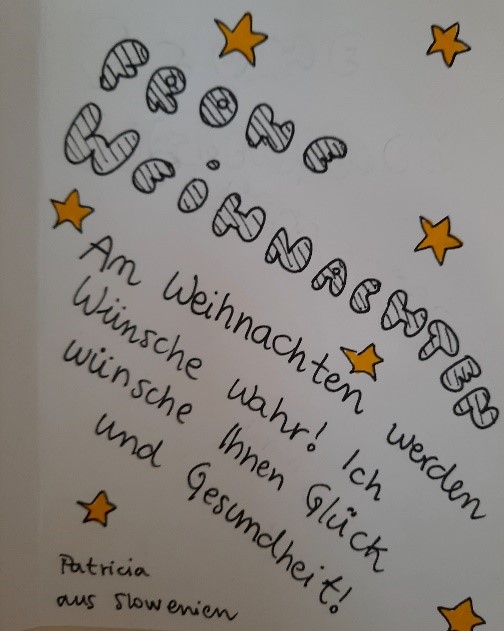 FROHE
WEiHNACHTEN
Am Weihnachten werden
Wünsche wahr! Ich
wünsche Ihnen Glück
und Gesundheit!
Patricia
aus Slowenien